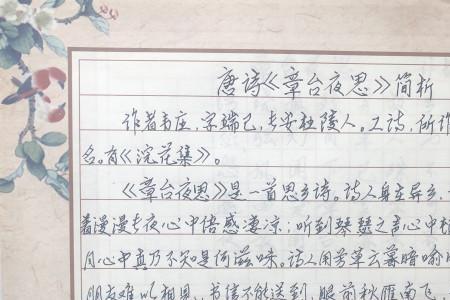 唐诗《章台夜思》简析
作者韦庄,字端己,长安杜陵人。工诗,所
名。有《浣花集》。
《章台夜思》是一首思乡诗。诗人身在异乡,
着漫漫长夜心中倍感凄凉;听到琴瑟之声心中
月心中真乃不知是何滋味。诗人用芳草方暮暗喻
朋友难以相见,书信不能送到,眼前秋雁南飞,